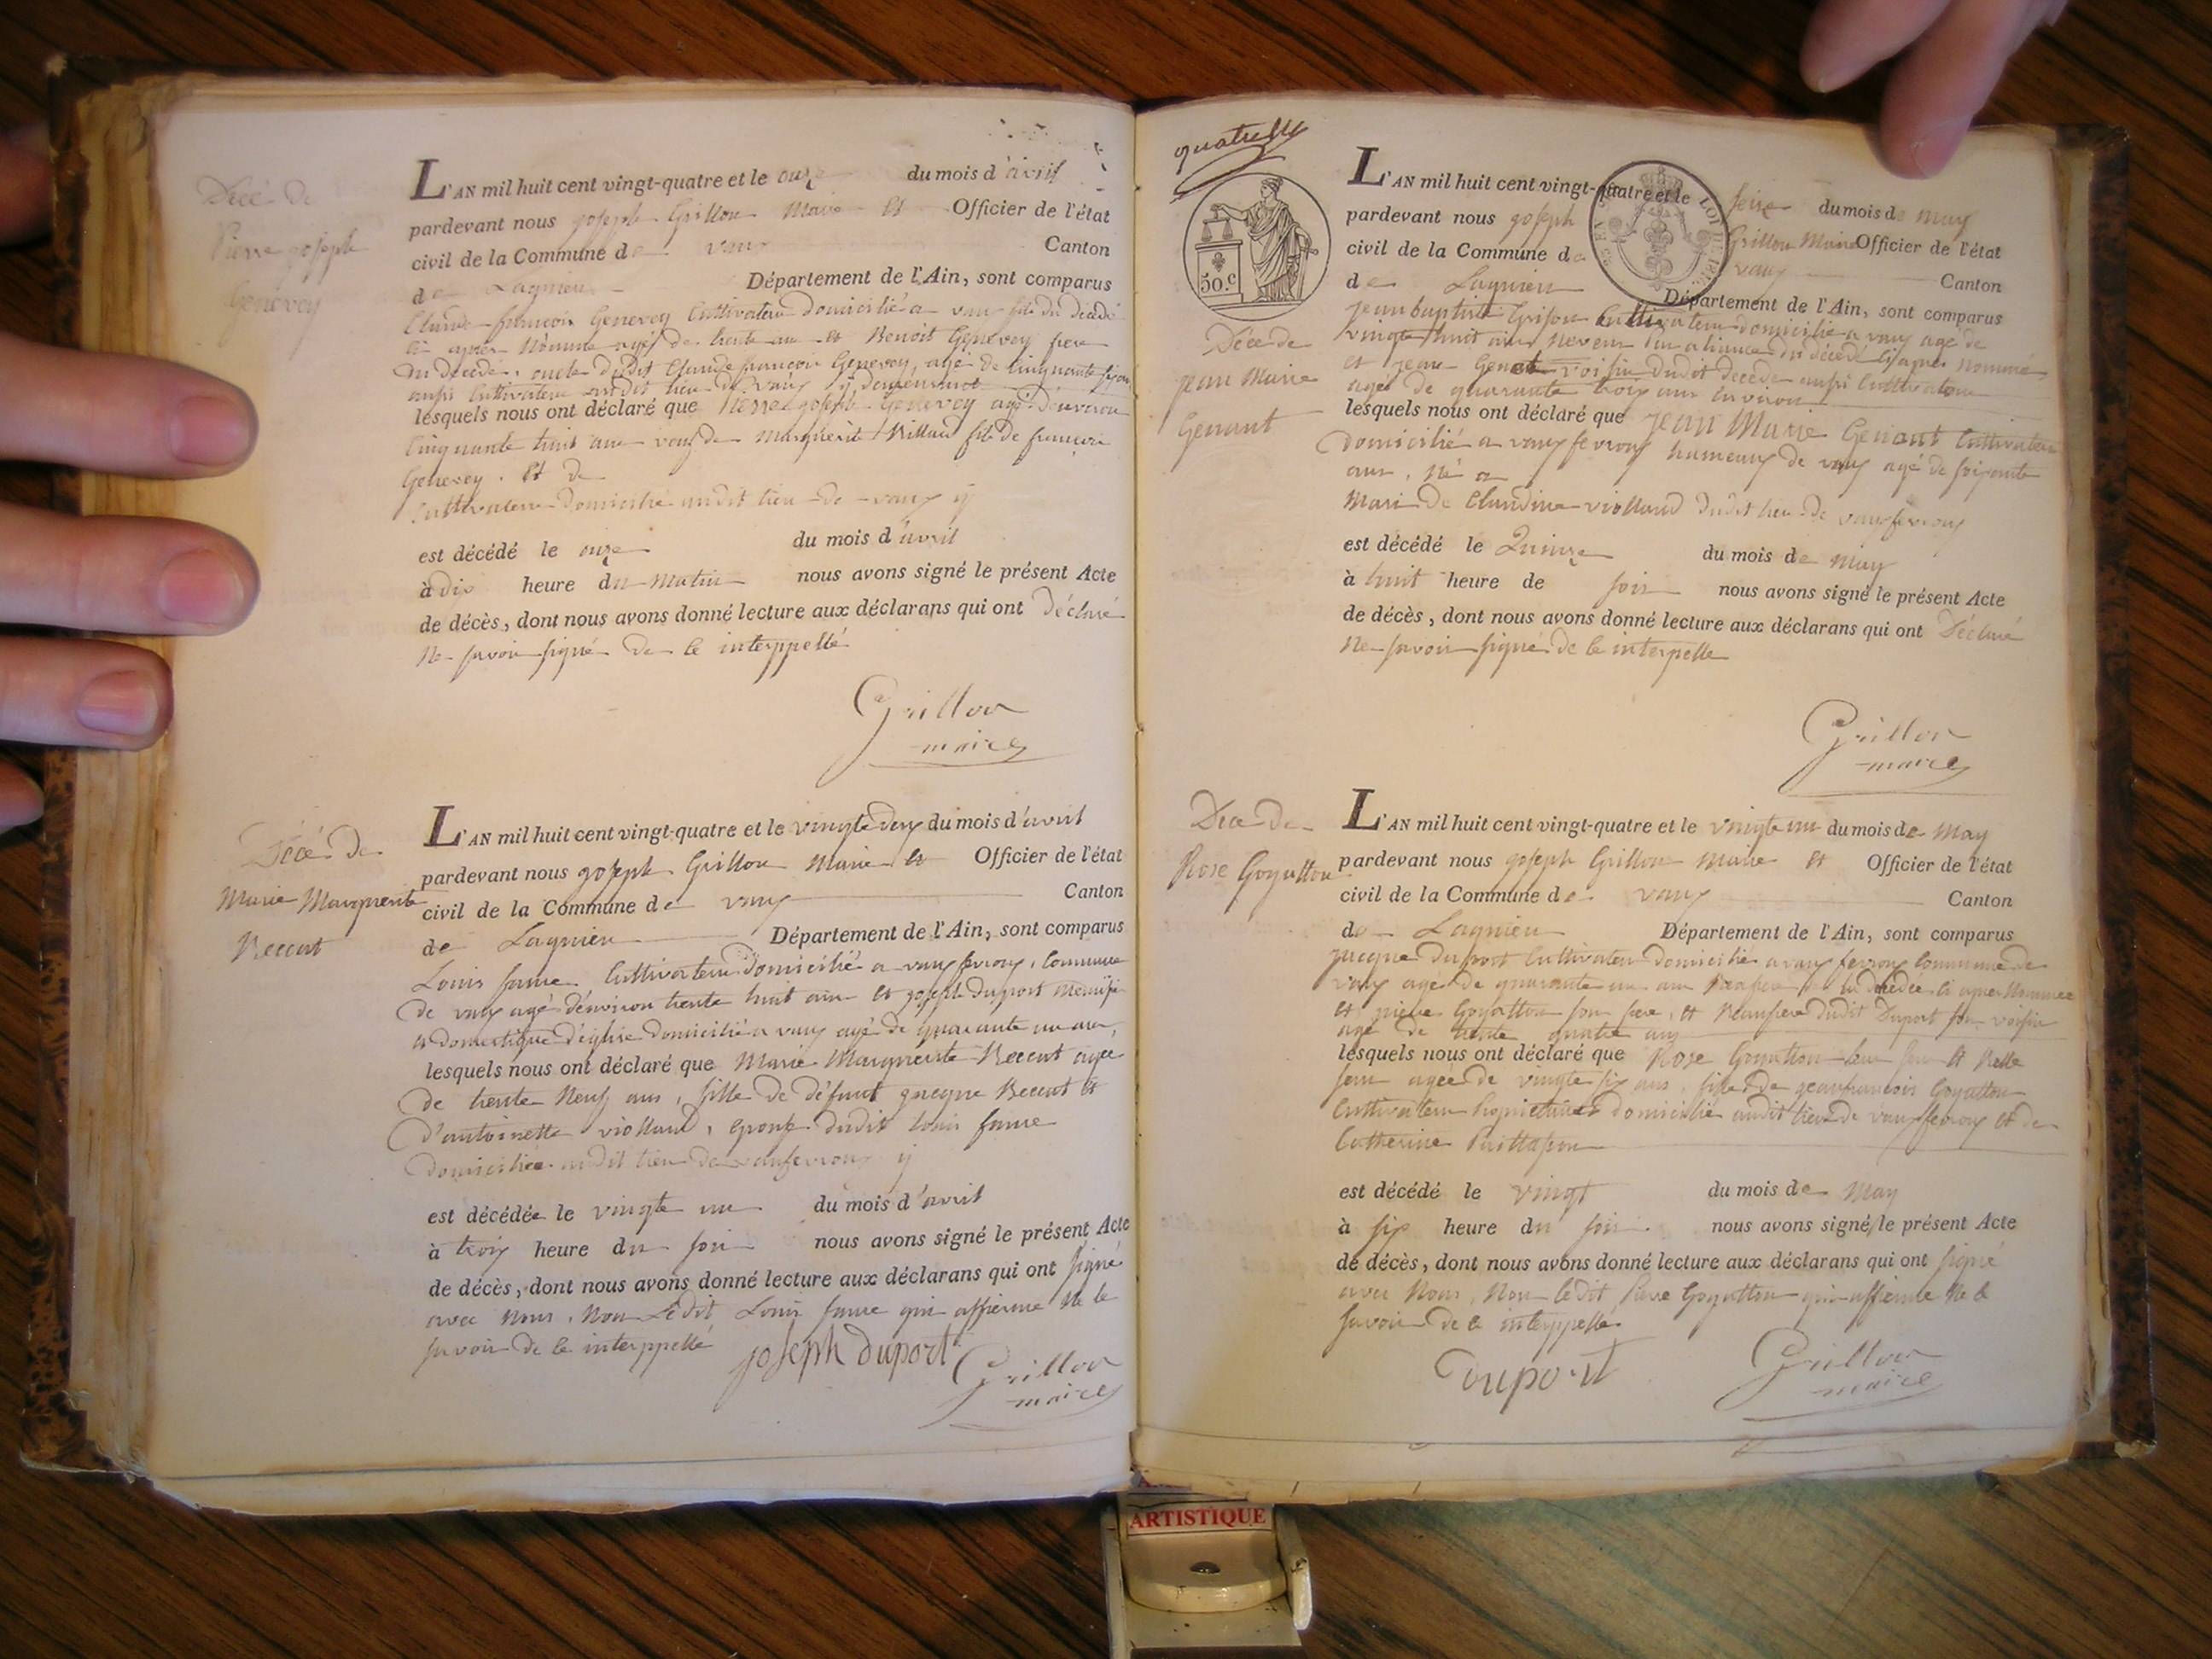 Décé de
Pierre joseph
Genevey
L'AN mil huit cent vingt-quatre et le onze du mois d'avril
pardevant nous joseph Grillon Maire et Officier de l'état
civil de la Commune de vaux Canton
de Lagnieu Département de l'Ain, sont comparus
Claude françois Genevey Cultivateur domicilié a vaux fils du décédé
ci après Nommé agé de trente ans et Benoit Genevey frere
du décédé, oncle dudit Claude françois Genevey, agé de cinquante
aussi Cultivateur audit lieu de vaux y demeurant
lesquels nous ont déclaré que Pierre joseph Genevey agé d'environ
cinquante huit ans veuf de Marguerite Villard fils de françois
Genevey. et de
Cultivateur domicilié audit lieu de vaux
est décédé le onze du mois d'avril
à dix heure du Matin nous avons signé le présent Acte
de décès, dont nous avons donné lecture aux déclarans qui ont déclaré
Ne savoir signé de ce interppellé
Grillon
maire
Décé de
Marie Marguerite
Reccut
L'AN mil huit cent vingt-quatre et le vingte deux du mois d'avril
pardevant nous joseph Grillon Maire et Officier de l'état
civil de la Commune de vaux Canton
de Lagnieu Département de l'Ain, sont comparus
Louis faure Cultivateur domicilié a vaux fevroux, Commune
de vaux agé d'environ trente huit ans et joseph duport
domestique d'église domicilié a vaux agé de quarante un ans,
lesquels nous ont déclaré que Marie Marguerite Reccut agée
de trente Neuf ans, fille de défunt jacque Reccut et
d'antoinette viollaud, epouse dudit Louis faure
domiciliée audit lieu de vaux fevroux
est décédée le vingte un du mois d'avril
à trois heure du soir nous avons signé le présent Acte
de décès, dont nous avons donné lecture aux déclarans qui ont signé
avec nous, Non Ledit Louis faure qui affirme Ne le
savoir de ce interppellé
joseph duport
Grillon
maire
50.c
Décé de
jean Marie
Genant
L'AN mil huit cent vingt-quatre et le seize du mois de may
pardevant nous joseph Grillon Maire Officier de l'état
civil de la Commune de vaux Canton
de Lagnieu Département de l'Ain, sont comparus
jean baptiste Grison Cultivateur domicilié a vaux agé de
vingte huit ans Neveu par aliance du décédé ci après nommé
et jean voisin dudit decédé aussi Cultivateur
agé de quarante trois ans environ
lesquels nous ont déclaré que Jean Marie Genant Cultivateur
domicilié a vaux fevroux hameaux de vaux agé de soixante
ans, né a
Mari de Claudine viollaud dudit lieu de vaux fevroux
est décédé le Quinze du mois de may
à huit heure de soir nous avons signé le présent Acte
de décès, dont nous avons donné lecture aux déclarans qui ont Déclaré
Ne savoir signé de ce interpellé
Grillon
maire
Décé de
Rose Goyatton
L'AN mil huit cent vingt-quatre et le vingte un du mois de may
pardevant nous joseph Grillon Maire et Officier de l'état
civil de la Commune de vaux Canton
de Lagnieu Département de l'Ain, sont comparus
jacque Duport Cultivateur domicilié a vaux fevroux Commune de
vaux agé de quarante un ans Beaufrere a la décédée ci après Nommée
et pierre Goyatton son frere, et Beaufrere dudit Duport son voisin
agé de trente quatre ans
lesquels nous ont déclaré que Rose Goyatton leur seur et Belle
seur agée de vingte six ans, fille de jean francois Goyatton
Cultivateur Proprietaire domicilié audit lieu de vaux fevroux et de
Catherine
est décédé le vingt du mois de May
à six heure du soir nous avons signé le présent Acte
de décès, dont nous avons donné lecture aux déclarans qui ont signé
avec Nous, Non ledit Pierre Goyatton qui affirme Ne le
savoir de ce interppellé
Duport
Grillon
maire
ARTISTIQUE